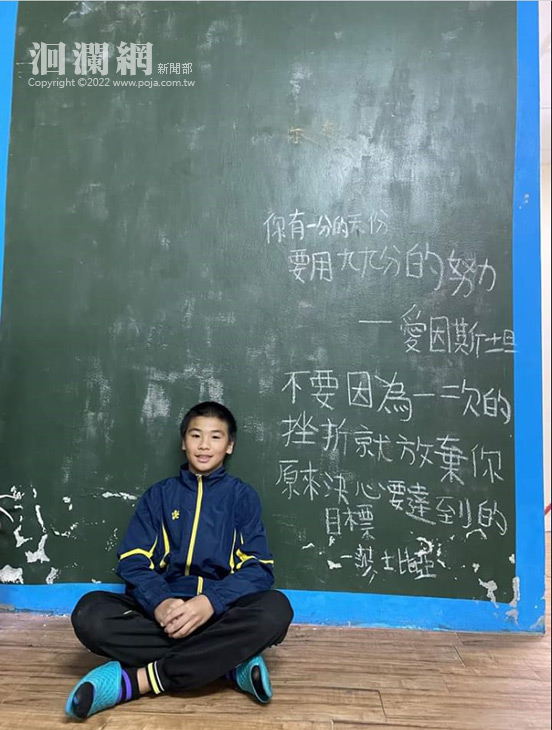 洄瀾網 新聞部
Copyright ©2022 www.poja.com.tw
你有一分的天份
要用九九分的努力
——愛因斯坦
不要因為一二次的
挫折就放棄你
原來決心要達到的
目標
—莎士比亞